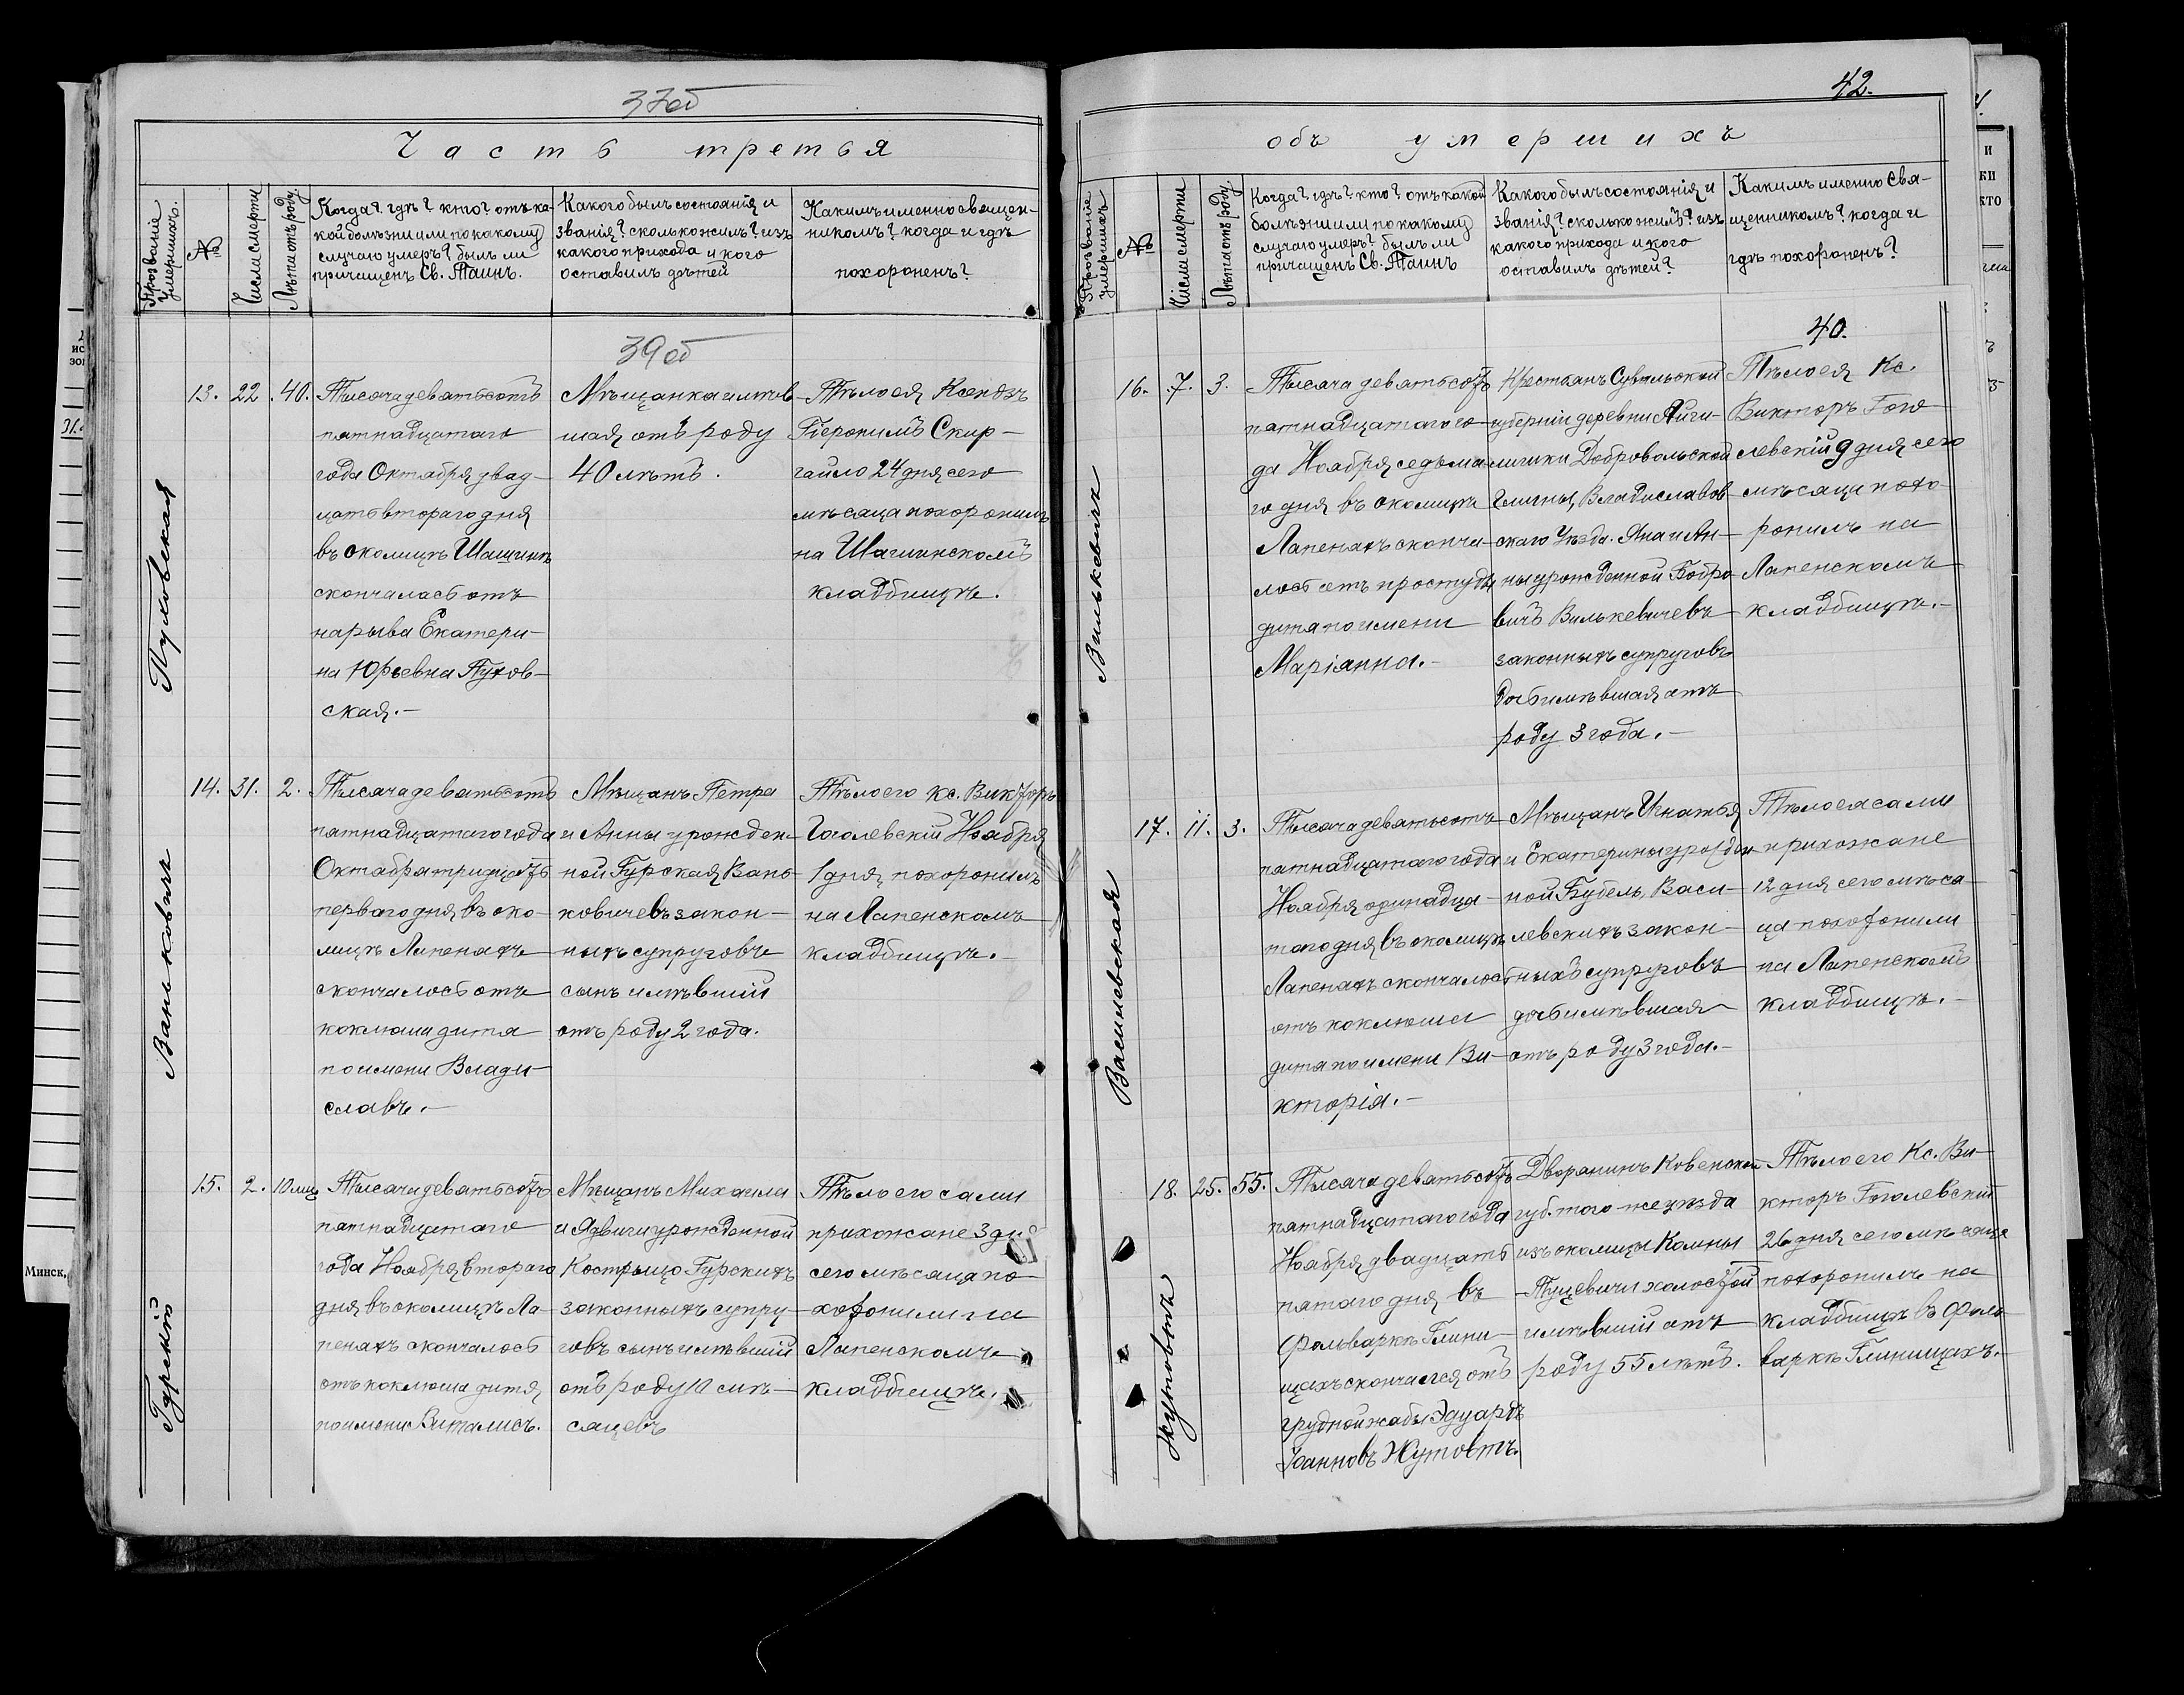 37об
Часть третья
Прозваніе Умершихъ.
№
Числа смерти
Лѣта отъ роду.
Когда? гдѣ? кто? отъ ка-
кой болѣзни или по какому
случаю умеръ? былъ ли
причащенъ Св. Таинъ.
Какого былъ состоянія и
званія? сколько жилъ? изъ
какого прихода и кого
оставилъ дѣтей
Какимъ именно священ-
никомъ? когда и гдѣ
похороненъ?
39об
Пуховская
13. 22. 40.
Тысяча девятьсотъ
пятнадцатаго
года Октября двад-
цать втораго дня
въ околицѣ Шащинѣ
скончалась отъ
нарыва Екатери-
на Юрьевна Пухов-
ская.-
Мѣщанка имѣв-
шая отъ роду
40 лѣтъ.
Тѣло ея Ксендзъ
Іеронимъ Скир-
гайло 24 дня сего
мѣсяца похоронилъ
на Шашинскомъ
кладбищѣ.
Ваньковичъ
14. 31. 2.
Тысяча девятьсотъ
пятнадцатаго года
Октября тридцать
перваго дня въ око-
лицѣ Лапенахъ
скончалось отъ
коклюша дитя
по имени Влади-
славъ.-
Мѣщанъ Петра
и Анны урожден-
ной Гурская Вань-
ковичевъ закон-
ныхъ супруговъ
сынъ имѣвшій
отъ роду 2 года.
Тѣло его кс. Викторъ
Гоголевскій Ноября
1 дня похоронилъ
на Лапенскомъ
кладбищѣ.-
Гурскій
15. 2. 10 мц.
Тысяча девятьсотъ
пятнадцатаго
года Ноября втораго
дня въ околицѣ Ла-
пенахъ скончалось
отъ коклюша дитя
по имени Виталисъ.
Мѣщанъ Михаила
и Ядвиги урожденной
Костыцю Гурскихъ
законныхъ супру-
говъ сынъ имѣвшій
отъ роду 10 мѣ-
сяцевъ
Тѣло его сами
прихожане 3 дня
сего мѣсяца по-
хоронили на
Лапенскомъ
кладбищѣ.
42.
объ умершихъ
Прозваніе умершихъ
№
Числа смерти
Лѣта отъ роду.
Когда? гдѣ? кто? отъ какой
болѣзни или по какому
случаю умеръ? былъ ли
причащенъ Св. Таинъ
Какого былъ состоянія и
званія? сколько жилъ? изъ
какого прихода и кого
оставилъ дѣтей?
Какимъ именно свя-
щенникомъ? когда и
гдѣ похороненъ?
40.
Вилькевичъ
16. 7. 3.
Тысяча девятьсотъ
пятнадцатаго го-
да Ноября седьма-
го дня въ околицѣ
Лапенахъ сконча-
лось отъ простуды
дитя по имени
Маріанна.-
Крестьянъ Сувальской
губерніи деревни Яйги-
лишки Добровольской
Гмины, Владиславов-
скаго Уѣзда. Яна и Ан-
ны урожденной Бобро-
вичъ Вилькевичевъ
законныхъ супруговъ
дочь имѣвшая отъ
роду 3 года.-
Тѣло ея Кс.
Викторъ Гого-
левскій 9 дня сего
мѣсяца похо-
ронилъ на
Лапенскомъ
кладбищѣ.-
Василевская
17. 11. 3.
Тысяча девятьсотъ
пятнадцатаго года
Ноября одинадца-
таго дня въ околицѣ
Лапенахъ скончалось
отъ коклюша
дитя по имени Ви-
кторія.-
Мѣщанъ Игнатья
и Екатерины урожден-
ной Бубель, Васи-
левскихъ закон-
ныхъ супруговъ
дочь имѣвшая
отъ роду 3 года.-
Тѣло ея сами
прихожане
12 дня сего мѣся-
ца похоронили
на Лапенскомъ
кладбищѣ.-
Жутовтъ
18. 25. 55.
Тысяча девятьсотъ
пятнадцатаго года
Ноября двадцать
пятаго дня въ
фольваркѣ Глини-
щахъ скончался отъ
грудной жабы Эдуардъ
Іоанновъ Жутовтъ.
Дворянинъ Ковенской
губ. того-же уѣзда
изъ околицы Комны
Туцевичи холостой
имѣвшій отъ
роду 55 лѣтъ.
Тѣло его Кс. Ви-
кторъ Гоголевскій
26 дня сего мѣсяца
похоронилъ на
кладбищѣ въ фоль-
варкѣ Глинищахъ.-
Минск,